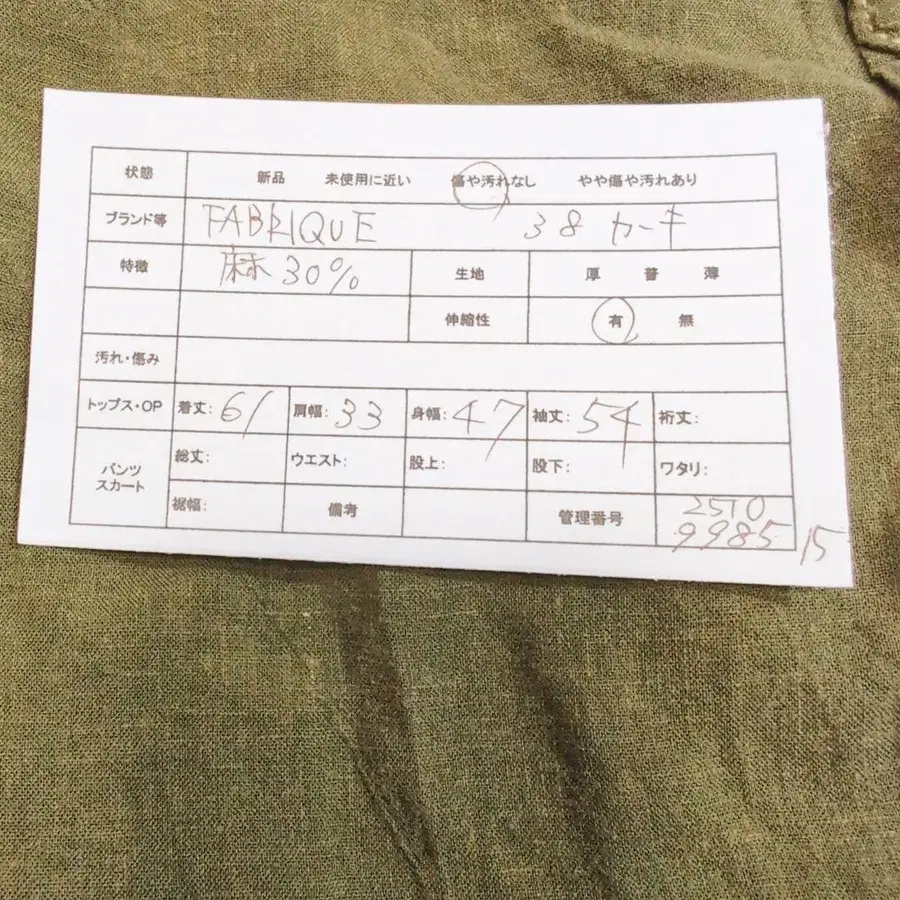 状態 新品 未使用に近い 傷や汚れなし やや傷や汚れあり
ブランド等 FABRIQUE 38 カーキ
特徴 麻30% 生地 厚 普 薄
伸縮性 有 無
汚れ・傷み
トップス・OP 着丈: 61 肩幅: 33 身幅: 47 袖丈: 54 裄丈:
パンツ スカート 総丈: ウエスト: 股上: 股下: ワタリ:
裾幅: 備考 管理番号 2510
9985 15